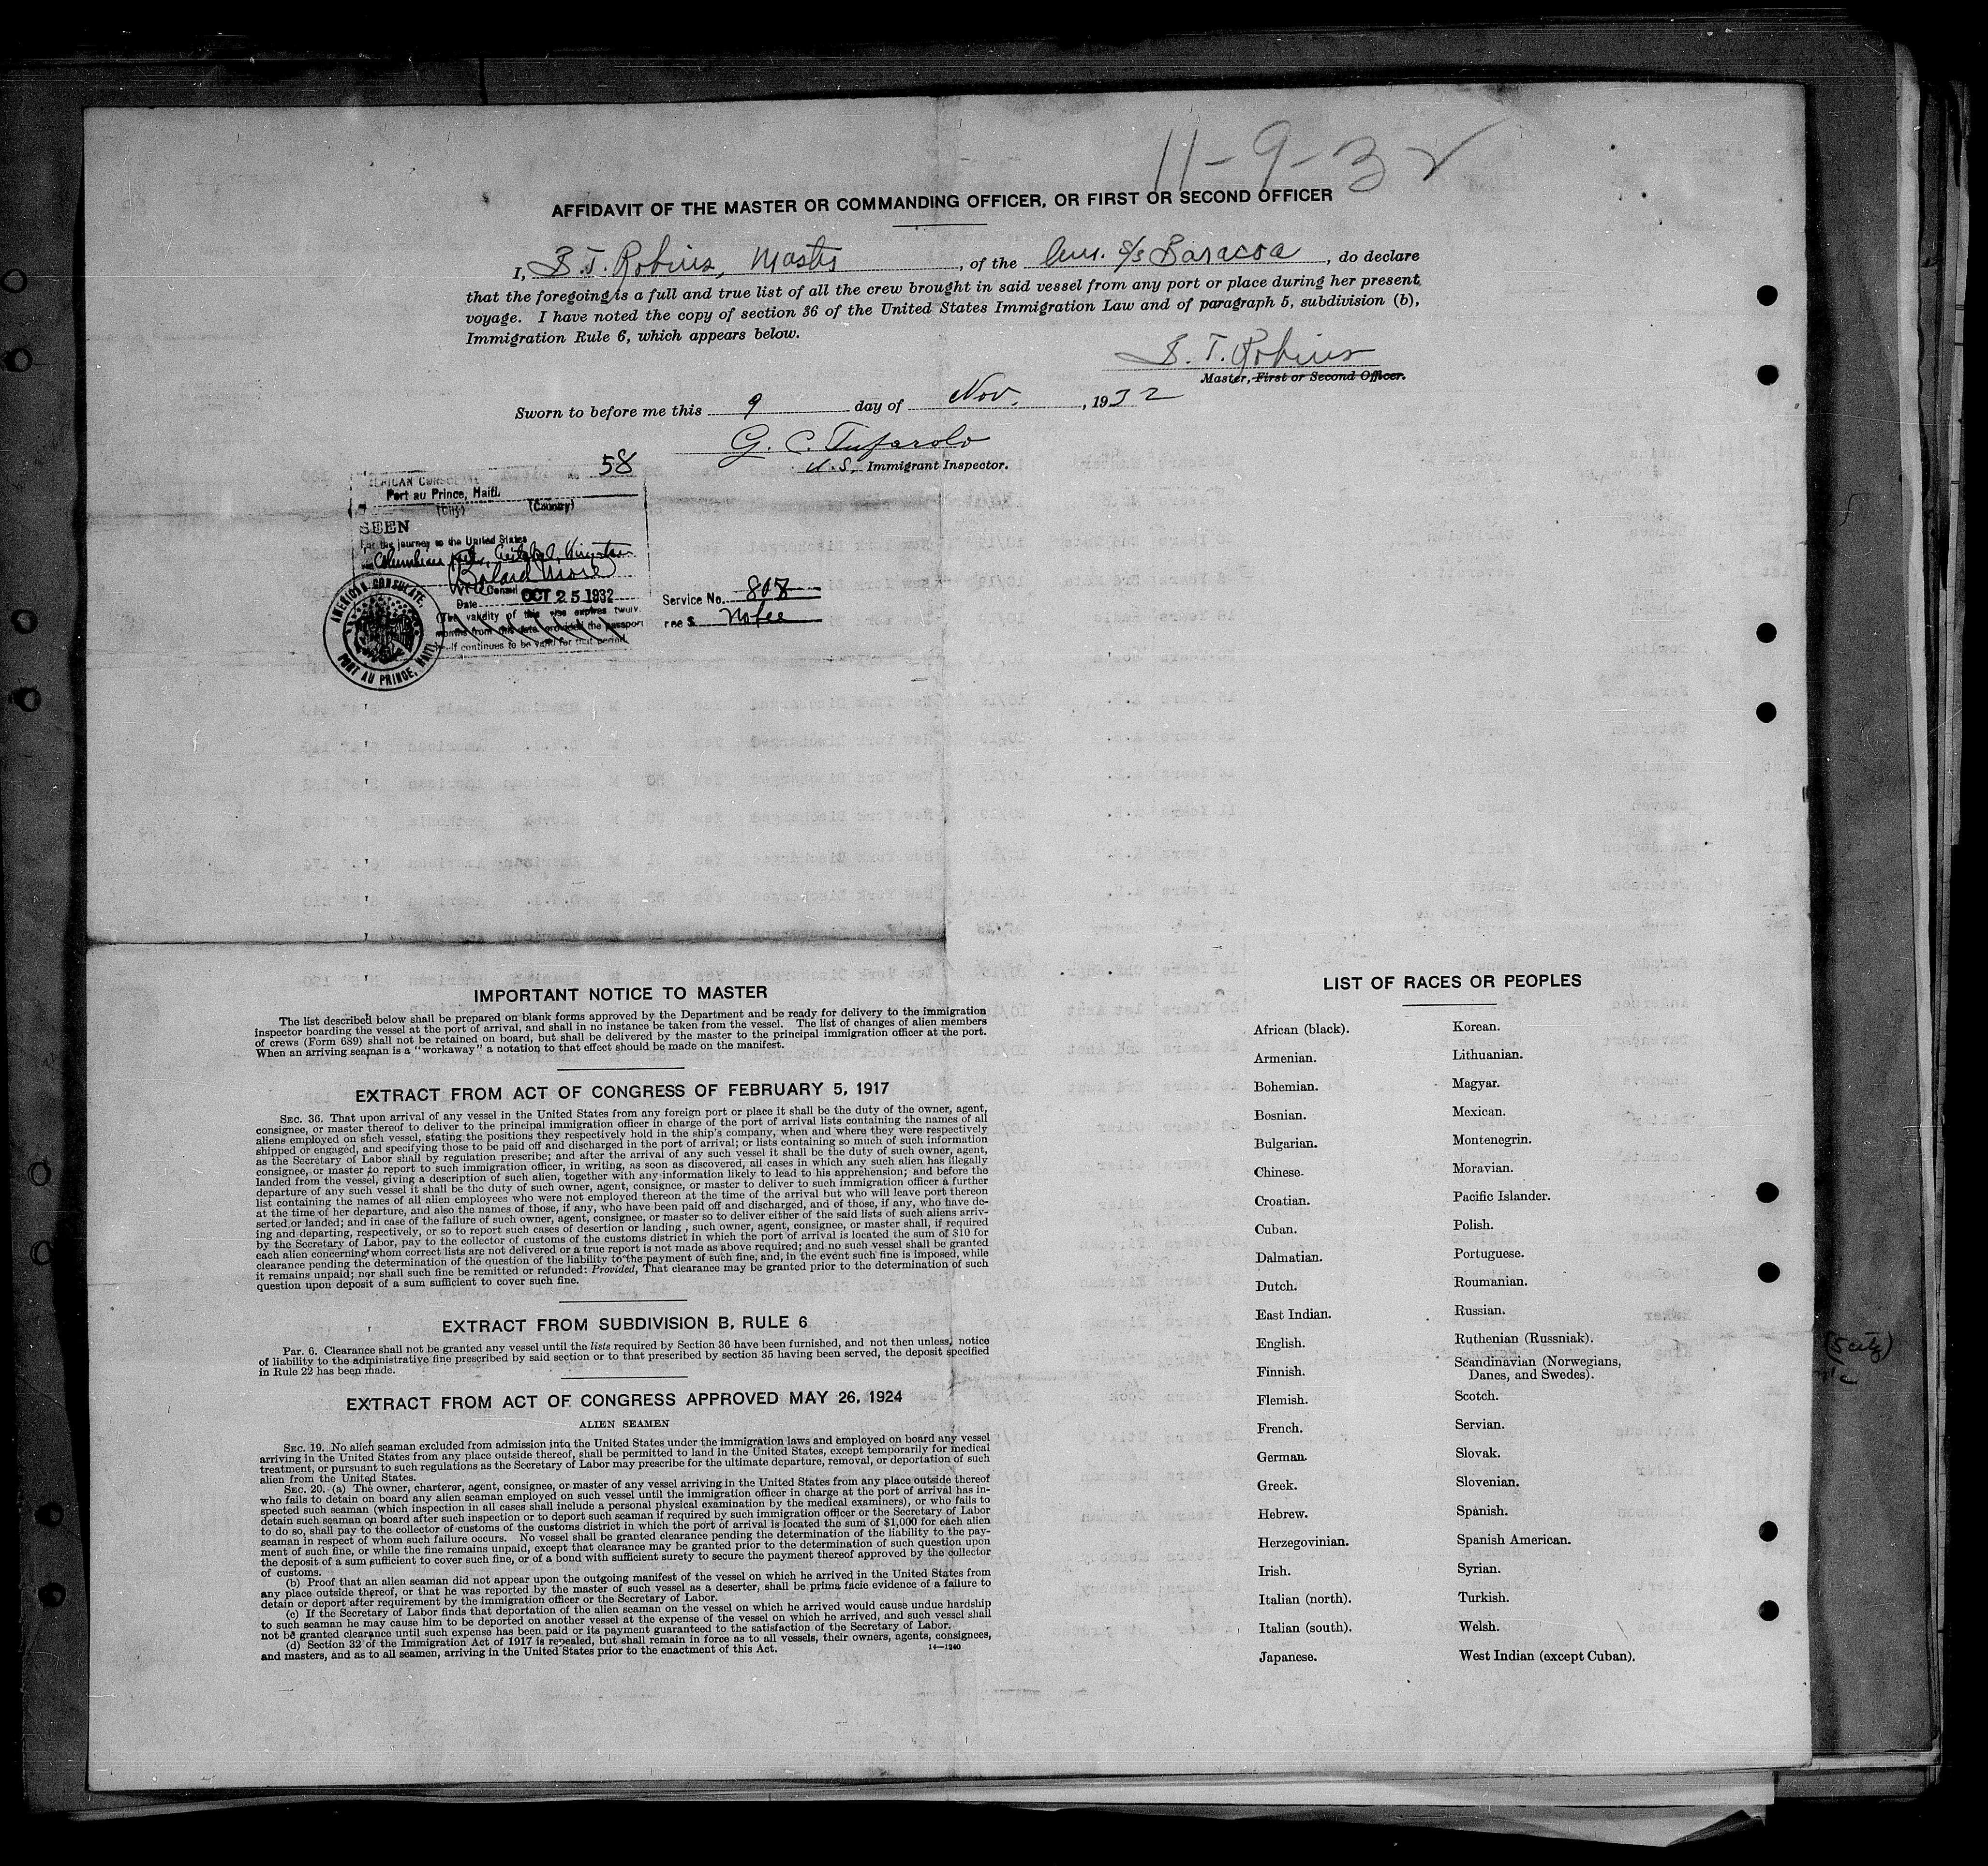 11-9-32
AFFIDAVIT OF THE MASTER OR COMMANDING OFFICER, OR FIRST OR SECOND OFFICER
I, S. T. Robins, Master, of the Am. S/S Baracoa, do declare
that the foregoing is a full and true list of all the crew brought in said vessel from any port or place during her present
voyage. I have noted the copy of section 36 of the United States Immigration Law and of paragraph 5, subdivision (b),
Immigration Rule 6, which appears below.
S. T. Robins
Master, First or Second Officer.
Sworn to before me this 9 day of Nov., 1932
G. C. Tufarolo
U.S. Immigrant Inspector.
58
AMERICAN CONSULATE
Port au Prince, Haiti.
(City) (Country)
SEEN
For the journey to the United States
via Columbian pts, Cristobal, Kingston
Vice Consul
Date OCT 25 1932
(The validity of this vise expires twelve
months from this date provided the passport
itself continues to be valid for that period.
AMERICAN CONSULATE,
PORT AU PRINCE, HAITI
Service No. 808
Fee $ No fee
IMPORTANT NOTICE TO MASTER
The list described below shall be prepared on blank forms approved by the Department and be ready for delivery to the immigration
inspector boarding the vessel at the port of arrival, and shall in no instance be taken from the vessel. The list of changes of alien members
of crews (Form 689) shall not be retained on board, but shall be delivered by the master to the principal immigration officer at the port.
When an arriving seaman is a "workaway" a notation to that effect should be made on the manifest.
EXTRACT FROM ACT OF CONGRESS OF FEBRUARY 5, 1917
SEC. 36. That upon arrival of any vessel in the United States from any foreign port or place it shall be the duty of the owner, agent,
consignee, or master thereof to deliver to the principal immigration officer in charge of the port of arrival lists containing the names of all
aliens employed on such vessel, stating the positions they respectively hold in the ship's company, when and where they were respectively
shipped or engaged, and specifying those to be paid off and discharged in the port of arrival; or lists containing so much of such information
as the Secretary of Labor shall by regulation prescribe; and after the arrival of any such vessel it shall be the duty of such owner, agent,
consignee, or master to report to such immigration officer, in writing, as soon as discovered, all cases in which any such alien has illegally
landed from the vessel, giving a description of such alien, together with any information likely to lead to his apprehension; and before the
departure of any such vessel it shall be the duty of such owner, agent, consignee, or master to deliver to such immigration officer a further
list containing the names of all alien employees who were not employed thereon at the time of the arrival but who will leave port thereon
at the time of her departure, and also the names of those, if any, who have been paid off and discharged, and of those, if any, who have de-
serted or landed; and in case of the failure of such owner, agent, consignee, or master so to deliver either of the said lists of such aliens arriv-
ing and departing, respectively, or so to report such cases of desertion or landing, such owner, agent, consignee, or master shall, if required
by the Secretary of Labor, pay to the collector of customs of the customs district in which the port of arrival is located the sum of $10 for
each alien concerning whom correct lists are not delivered or a true report is not made as above required; and no such vessel shall be granted
clearance pending the determination of the question of the liability to the payment of such fine, and, in the event such fine is imposed, while
it remains unpaid; nor shall such fine be remitted or refunded: Provided, That clearance may be granted prior to the determination of such
question upon deposit of a sum sufficient to cover such fine.
EXTRACT FROM SUBDIVISION B, RULE 6
Par. 6. Clearance shall not be granted any vessel until the lists required by Section 36 have been furnished, and not then unless, notice
of liability to the administrative fine prescribed by said section or to that prescribed by section 35 having been served, the deposit specified
in Rule 22 has been made.
EXTRACT FROM ACT OF CONGRESS APPROVED MAY 26, 1924
ALIEN SEAMEN
SEC. 19. No alien seaman excluded from admission into the United States under the immigration laws and employed on board any vessel
arriving in the United States from any place outside thereof, shall be permitted to land in the United States, except temporarily for medical
treatment, or pursuant to such regulations as the Secretary of Labor may prescribe for the ultimate departure, removal, or deportation of such
alien from the United States.
SEC. 20. (a) The owner, charterer, agent, consignee, or master of any vessel arriving in the United States from any place outside thereof
who fails to detain on board any alien seaman employed on such vessel until the immigration officer in charge at the port of arrival has in-
spected such seaman (which inspection in all cases shall include a personal physical examination by the medical examiners), or who fails to
detain such seaman on board after such inspection or to deport such seaman if required by such immigration officer or the Secretary of Labor
to do so, shall pay to the collector of customs of the customs district in which the port of arrival is located the sum of $1,000 for each alien
seaman in respect of whom such failure occurs. No vessel shall be granted clearance pending the determination of the liability to the pay-
ment of such fine, or while the fine remains unpaid, except that clearance may be granted prior to the determination of such question upon
the deposit of a sum sufficient to cover such fine, or of a bond with sufficient surety to secure the payment thereof approved by the collector
of customs.
(b) Proof that an alien seaman did not appear upon the outgoing manifest of the vessel on which he arrived in the United States from
any place outside thereof, or that he was reported by the master of such vessel as a deserter, shall be prima facie evidence of a failure to
detain or deport after requirement by the immigration officer or the Secretary of Labor.
(c) If the Secretary of Labor finds that deportation of the alien seaman on the vessel on which he arrived would cause undue hardship
to such seaman he may cause him to be deported on another vessel at the expense of the vessel on which he arrived, and such vessel shall
not be granted clearance until such expense has been paid or its payment guaranteed to the satisfaction of the Secretary of Labor.
(d) Section 32 of the Immigration Act of 1917 is repealed, but shall remain in force as to all vessels, their owners, agents, consignees,
and masters, and as to all seamen, arriving in the United States prior to the enactment of this Act.
14—1240
LIST OF RACES OR PEOPLES
African (black).
Armenian.
Bohemian.
Bosnian.
Bulgarian.
Chinese.
Croatian.
Cuban.
Dalmatian.
Dutch.
East Indian.
English.
Finnish.
Flemish.
French.
German.
Greek.
Hebrew.
Herzegovinian.
Irish.
Italian (north).
Italian (south).
Japanese.
Korean.
Lithuanian.
Magyar.
Mexican.
Montenegrin.
Moravian.
Pacific Islander.
Polish.
Portuguese.
Roumanian.
Russian.
Ruthenian (Russniak).
Scandinavian (Norwegians,
Danes, and Swedes).
Scotch.
Servian.
Slovak.
Slovenian.
Spanish.
Spanish American.
Syrian.
Turkish.
Welsh.
West Indian (except Cuban).